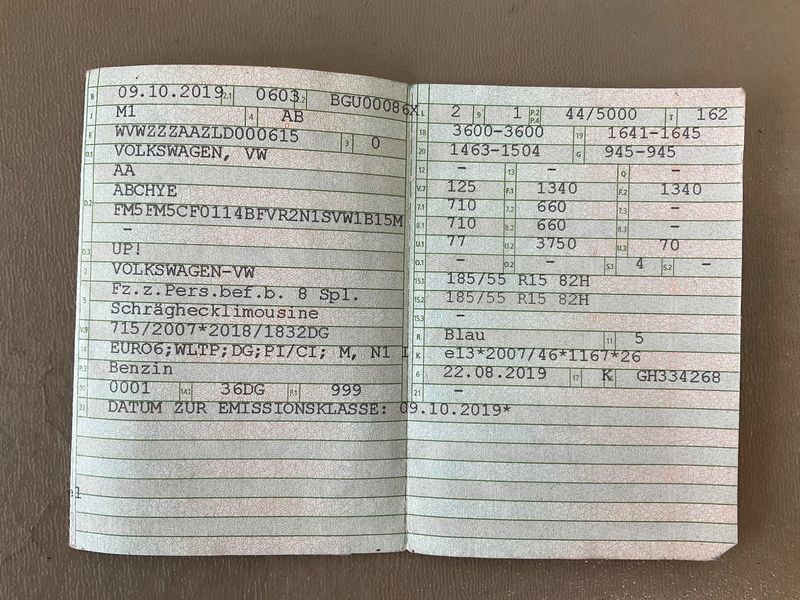 B 09.10.2019 2.1 0603 2.2 BGU00086X
J M1 4 AB
E WVWZZZAAZLD000615 3 0
D.1 VOLKSWAGEN, VW
AA
ABCHYE
D.2 FM5FM5CF0114BFVR2N1SVW1B15M
–
D.3 UP!
2 VOLKSWAGEN-VW
Fz.z.Pers.bef.b. 8 Spl.
5 Schräghecklimousine
V.9 715/2007*2018/1832DG
14 EURO6;WLTP;DG;PI/CI; M, N1 I
P.3 Benzin
10 0001 14.1 36DG P.1 999
22 DATUM ZUR EMISSIONSKLASSE: 09.10.2019*
L 2 9 1 P.2 P.4 44/5000 T 162
18 3600-3600 19 1641-1645
20 1463-1504 G 945-945
12 – 13 – Q –
V.7 125 F.1 1340 F.2 1340
7.1 710 7.2 660 7.3 –
8.1 710 8.2 660 8.3 –
U.1 77 U.2 3750 U.3 70
O.1 – O.2 – S.1 4 S.2 –
15.1 185/55 R15 82H
15.2 185/55 R15 82H
15.3 –
R Blau 11 5
K e13*2007/46*1167*26
6 22.08.2019 17 K 16 GH334268
21 –